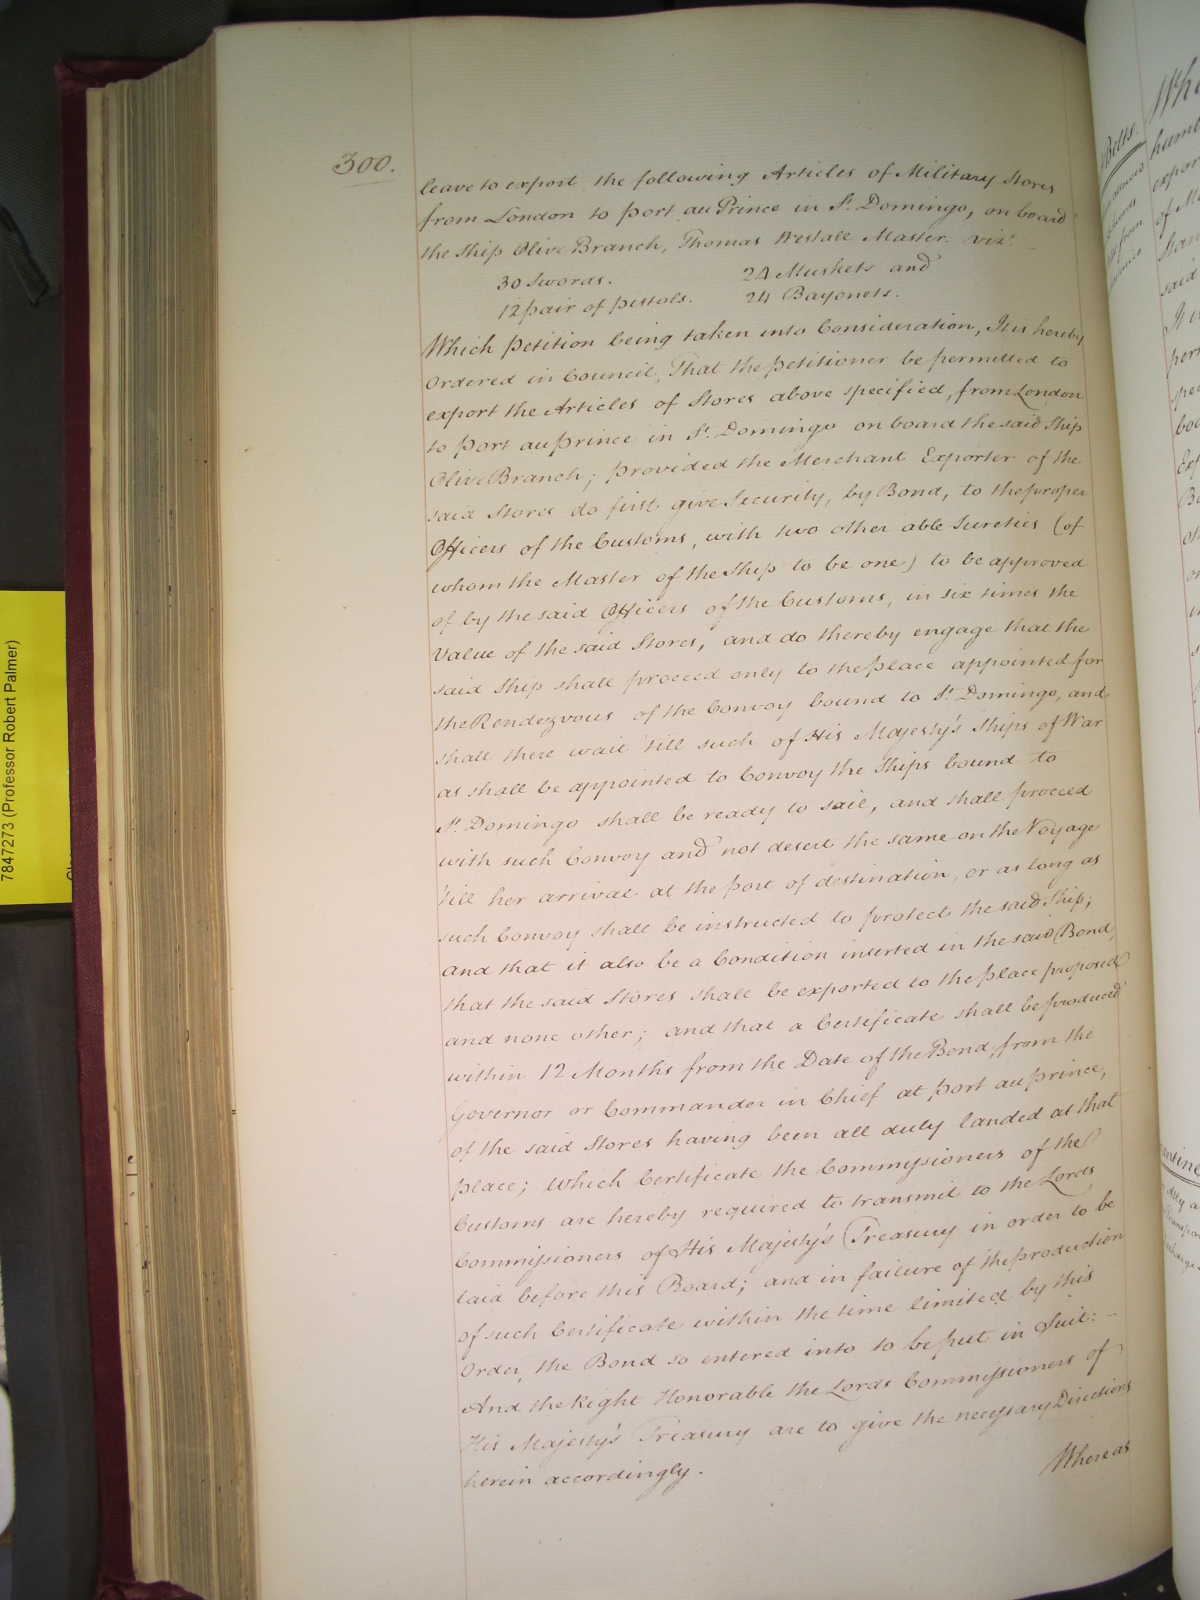 300.
leave to export the following Articles of Military Stores
from London to Port au Prince in St. Domingo, on board
the Ship Olive Branch, Thomas Westall Master. vizt.
30 Swords. 24 Muskets and
12 pair of pistols. 24 Bayonets.
Which petition being taken into Consideration, It is hereby
Ordered in Council, That the petitioner be permitted to
export the Articles of Stores above specified, from London
to Port au Prince in St. Domingo on board the said Ship
Olive Branch; provided the Merchant Exporter of the
said Stores do first give Security, by Bond, to the proper
Officers of the Customs, with two other able Sureties (of
whom the Master of the Ship to be one) to be approved
of by the said Officers of the Customs, in six times the
Value of the said Stores, and do thereby engage that the
said Ship shall proceed only to the place appointed for
the Rendezvous of the Convoy bound to St. Domingo, and
shall there wait 'till such of His Majesty's Ships of War
as shall be appointed to Convoy the Ships bound to
St. Domingo shall be ready to sail, and shall proceed
with such Convoy and not desert the same on the Voyage
'till her arrival at the port of destination, or as long as
such Convoy shall be instructed to protect the said Ship;
and that it also be a Condition inserted in the said Bond,
that the said Stores shall be exported to the place proposed
and none other; and that a Certificate shall be produced
within 12 Months from the Date of the Bond, from the
Governor or Commander in Chief at Port au Prince,
of the said Stores having been all duly landed at that
place; which Certificate the Commissioners of the
Customs are hereby required to transmit to the Lords
Commissioners of His Majesty's Treasury in order to be
laid before this Board; and in failure of the production
of such Certificate within the time limited by this
Order, the Bond so entered into to be put in Suit: -
And the Right Honorable the Lords Commissioners of
His Majesty's Treasury are to give the necessary Directions
herein accordingly.
Whereas
7847273 (Professor Robert Palmer)
Belts.